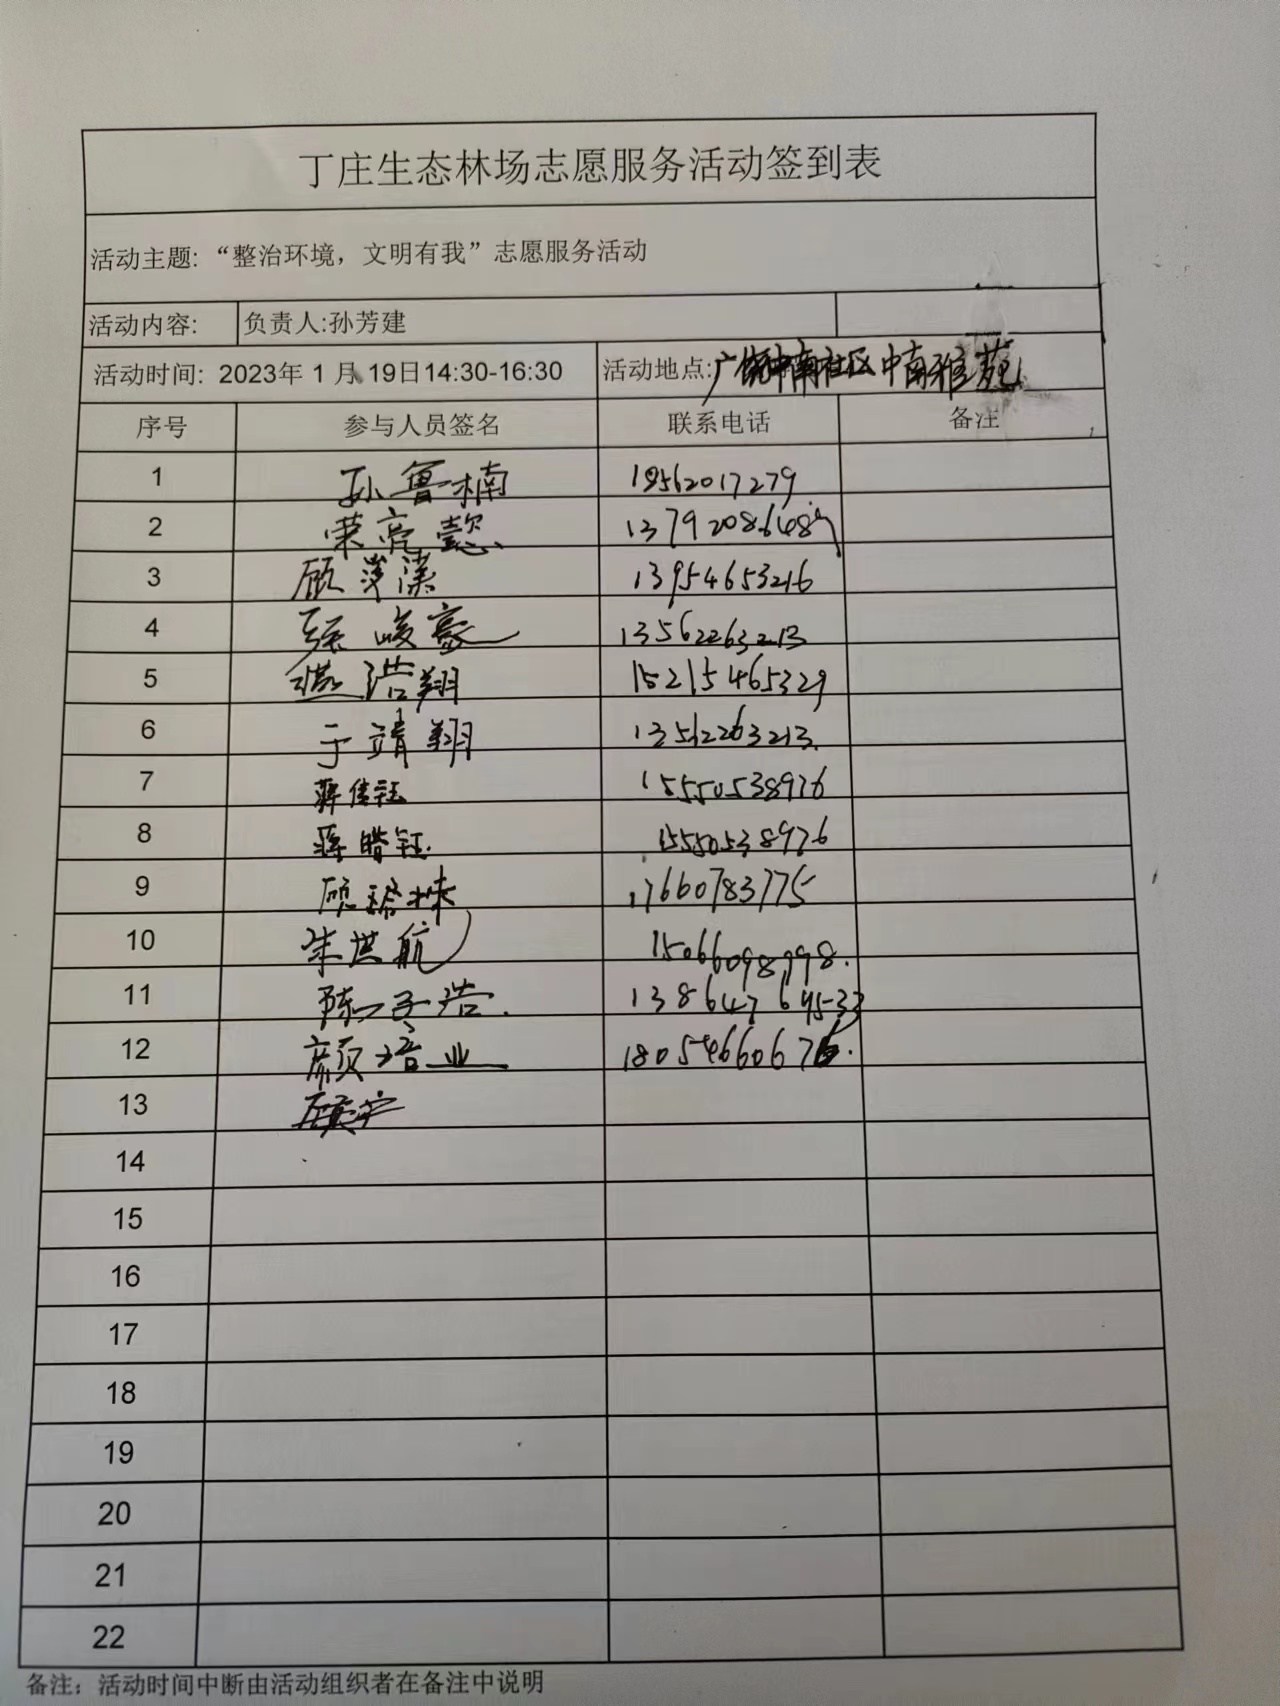 丁庄生态林场志愿服务活动签到表
活动主题：“整治环境，文明有我”志愿服务活动
活动内容: 负责人:孙芳建
活动时间: 2023年 1 月 19日14:30-16:30 活动地点: 广饶中南社区中南雅苑
序号 参与人员签名 联系电话 备注
1 孙鲁楠 18562017279
2 荣亮懿
3 顾 13954653216
4 张峻豪 13562263213
5 燕浩翔 15215465329
6 于靖翔 13562263213
7 蒋佳钰 15550538976
8 蒋皓钰 15550538976
9 顾 17660783775
10 朱洪航 15066098998
11 陈子浩
12 颜培业 18054660676
13
14
15
16
17
18
19
20
21
22
备注：活动时间中断由活动组织者在备注中说明